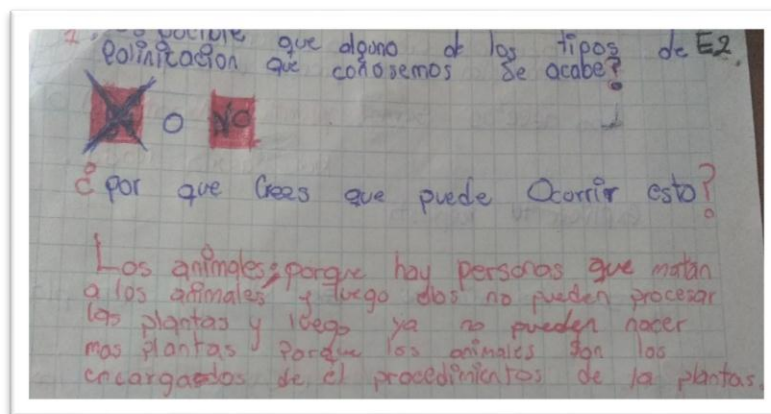 1. que alguno de los tipos de E2.
Polinitacion que conosemos se acabe?
o NO
¿por que Crees que puede Ocorrir esto?
Los animales, porque hay personas que matan
a los animales y luego no pueden procesar
las plantas y luego ya no pueden nacer
mas plantas Porque los animales son los
encargados de el procedimientos de la plantas.